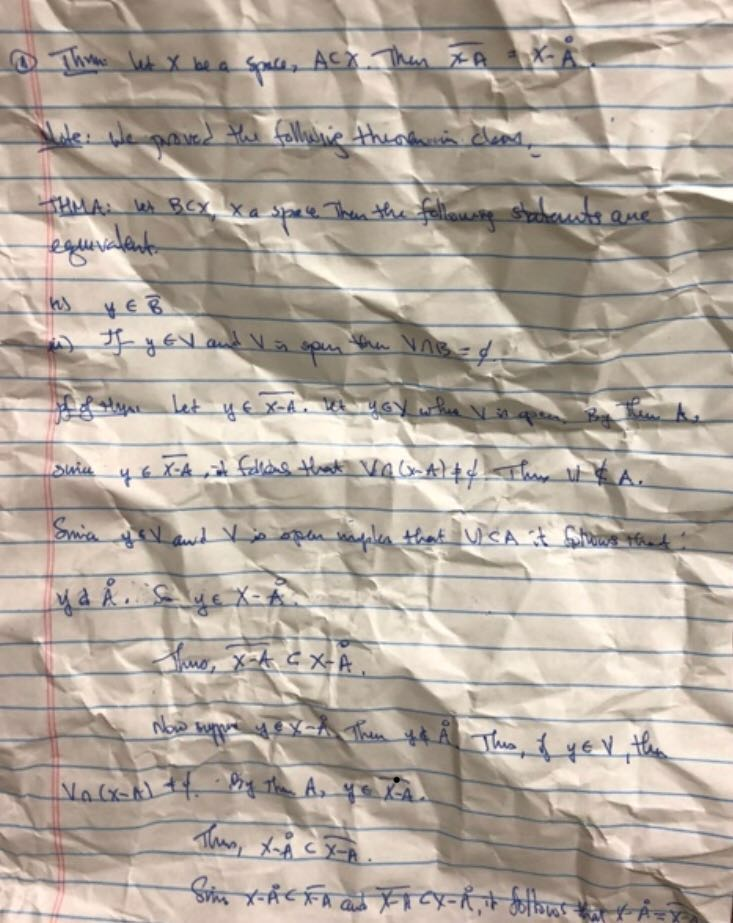 ① Thm: Let X be a space, A⊂X. Then \overline{X-A} = X-Å.
Note: We proved the following theorem in class.
THM A: Let B⊂X, X a space. Then the following statements are
equivalent.
y ∈ \overline{B}
If y ∈ V and V is open then V∩B = ∅.
Pf of thm: Let y ∈ \overline{X-A}. Let y∈V where V is open. By Thm A,
since y ∈ \overline{X-A}, it follows that V∩(X-A) ≠ ∅. Thus V ⊄ A.
Since y∈V and V is open implies that V ⊄ A it follows that
y ∉ Å. So y ∈ X-Å.
Thus, \overline{X-A} ⊂ X-Å.
Now suppose y ∈ X-Å. Then y ∉ Å. Thus, if y ∈ V, then
V∩(X-A) ≠ ∅. By Thm A, y ∈ \overline{X-A}.
Thus, X-Å ⊂ \overline{X-A}.
Since X-Å ⊂ \overline{X-A} and \overline{X-A} ⊂ X-Å, it follows that X-Å =